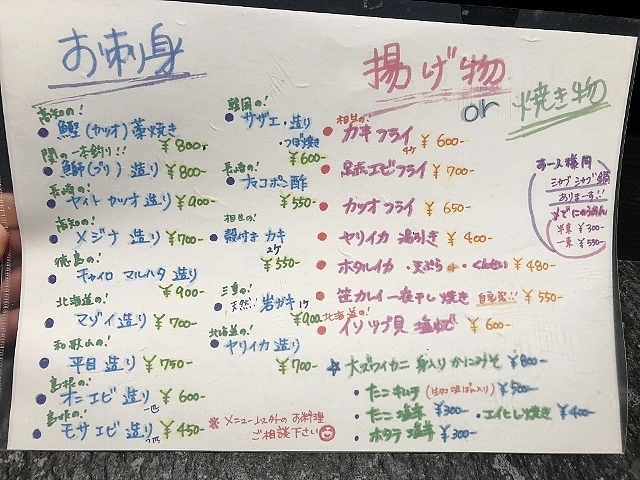 お刺身
高知の!
鰹(カツオ)藁焼き
¥800-
関の一本釣り!!
鰤(ブリ)造り ¥800-
長崎の!
ヤイトカツオ造り ¥900-
高知の!
メジナ造り ¥700-
徳島の!
チャイロマルハタ造り
¥900-
北海道の!
マゾイ造り ¥700-
和歌山の!
平目造り ¥750-
島根の!
オニエビ造り ¥600-
島根の!
モサエビ造り ¥450-
韓国の!
サザエ・造り
つぼ焼き
¥600-
長崎の!
大コポン酢
¥550-
相生の!
殻付きカキ
2ケ
¥550-
三重の!
天然!岩ガキ 1ケ
¥900-
北海道の!
ヤリイカ造り
¥700-
※メニュー以外のお料理
ご相談下さい
揚げ物
or
焼き物
相生の!
カキフライ ¥600-
足赤エビフライ ¥700-
カツオフライ ¥650-
ヤリイカ湯引き ¥400-
ホタルイカ・天ぷら or ・くんせい ¥480-
笹カレイ一夜干し焼き 自家製!! ¥550-
北海道の!
イソツブ貝塩ゆで ¥600-
☆大ズワイカニ身入りかにみそ ¥800-
・たこキムチ ¥500-
・たこ塩辛 ¥300- ・エイヒレ焼き ¥400-
・ホタテ塩辛 ¥300-
お一人様用
シャブシャブ鍋
ありまーす!!
〆でにゅうめん
半束 ¥300-
一束 ¥550-